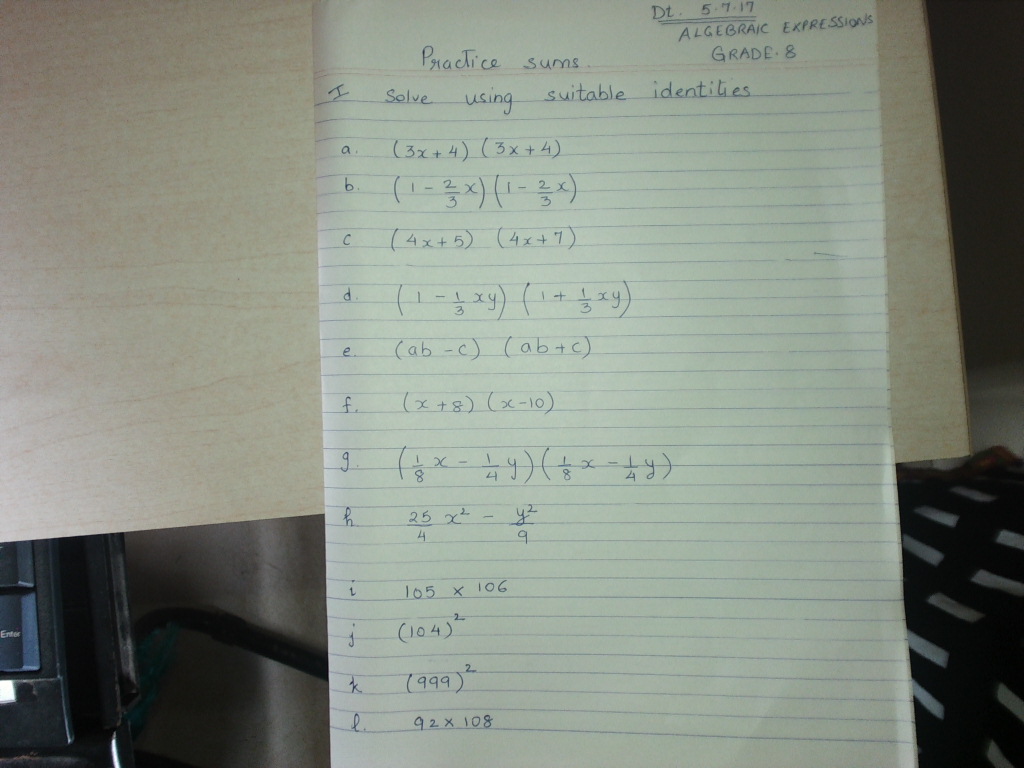 Dt. 5.7.17
ALGEBRAIC EXPRESSIONS
GRADE.8
Practice sums.
I Solve using suitable identities
a. (3x + 4) (3x + 4)
b. (1 - 2/3 x) (1 - 2/3 x)
c (4x + 5) (4x + 7)
d. (1 - 1/3 xy) (1 + 1/3 xy)
e. (ab - c) (ab + c)
f. (x + 8) (x - 10)
g. (1/8 x - 1/4 y) (1/8 x - 1/4 y)
h 25/4 x² - y²/9
i 105 x 106
j (104)²
k (999)²
l. 92 x 108
Enter